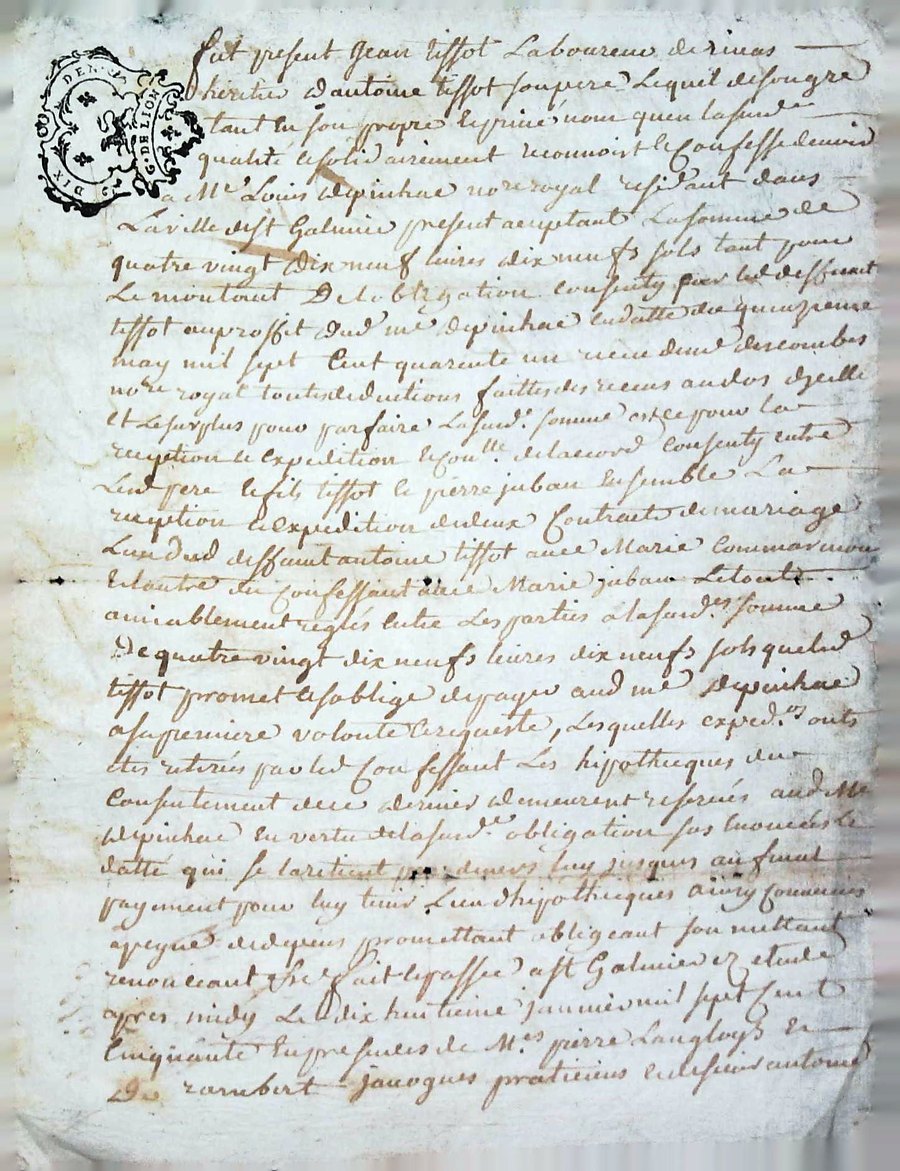 DIX DEN.
G. DE LION
fut present Jean tissot Laboureur de rivas
héritier d'antoine tissot son pere Lequel de son gré
tant en son propre et privé nom qu'en la susde
qualité et solidairement reconnoist et Confesse devoir
a Me Louis depinhac nore royal residant dans
La ville de st Galmier present acceptant La somme de
quatre vingt dix neuf livres dix neufs sols tant pour
Le montant De lobligation consenty par led deffunt
tissot au proffit dud me depinhac en datte du quinzieme
may mil sept Cent quarente un receu dud descombes
nore royal toutes deductions faittes des receus au dos dycelle
Et Le surplus pour parfaire La susde somme est ce pour la
reception et expedition et conlle de laccord consenty entre
Led pere et fils tissot et pierre juban Ensemble La
reception et expedition de deux Contracts de mariage
Lun dud deffunt antoine tissot avec Marie
Et lautre du Confessant avec Marie juban Le tout
amiablement reglés entre Les parties a la susdes somme
De quatre vingt dix neufs livres dix neufs sols que led
tissot promet et soblige de payer aud me depinhac
a sa premiere volonté et requeste, Lesquelles exped.ons onts
etés retirées par led Confessant Les hipothecques du
Consentement de ce dernier demeurent reservées aud Me
depinhac en vertu de la susde obligation sus enoncée et
datté qui se la retient par devers luy jusques au final
payement pour luy tenir Lieu d'hipothecques ainsy Convenus
a peyne de depens promettant obligeant soumettant
renonceant &c fait et passé a st Galmier ez etude
apres midy Le dix huitieme janvier mil sept Cent
Cinquante En presences de Mes pierre Langloys et
De rambert jacques praticiens et de sieur antoine